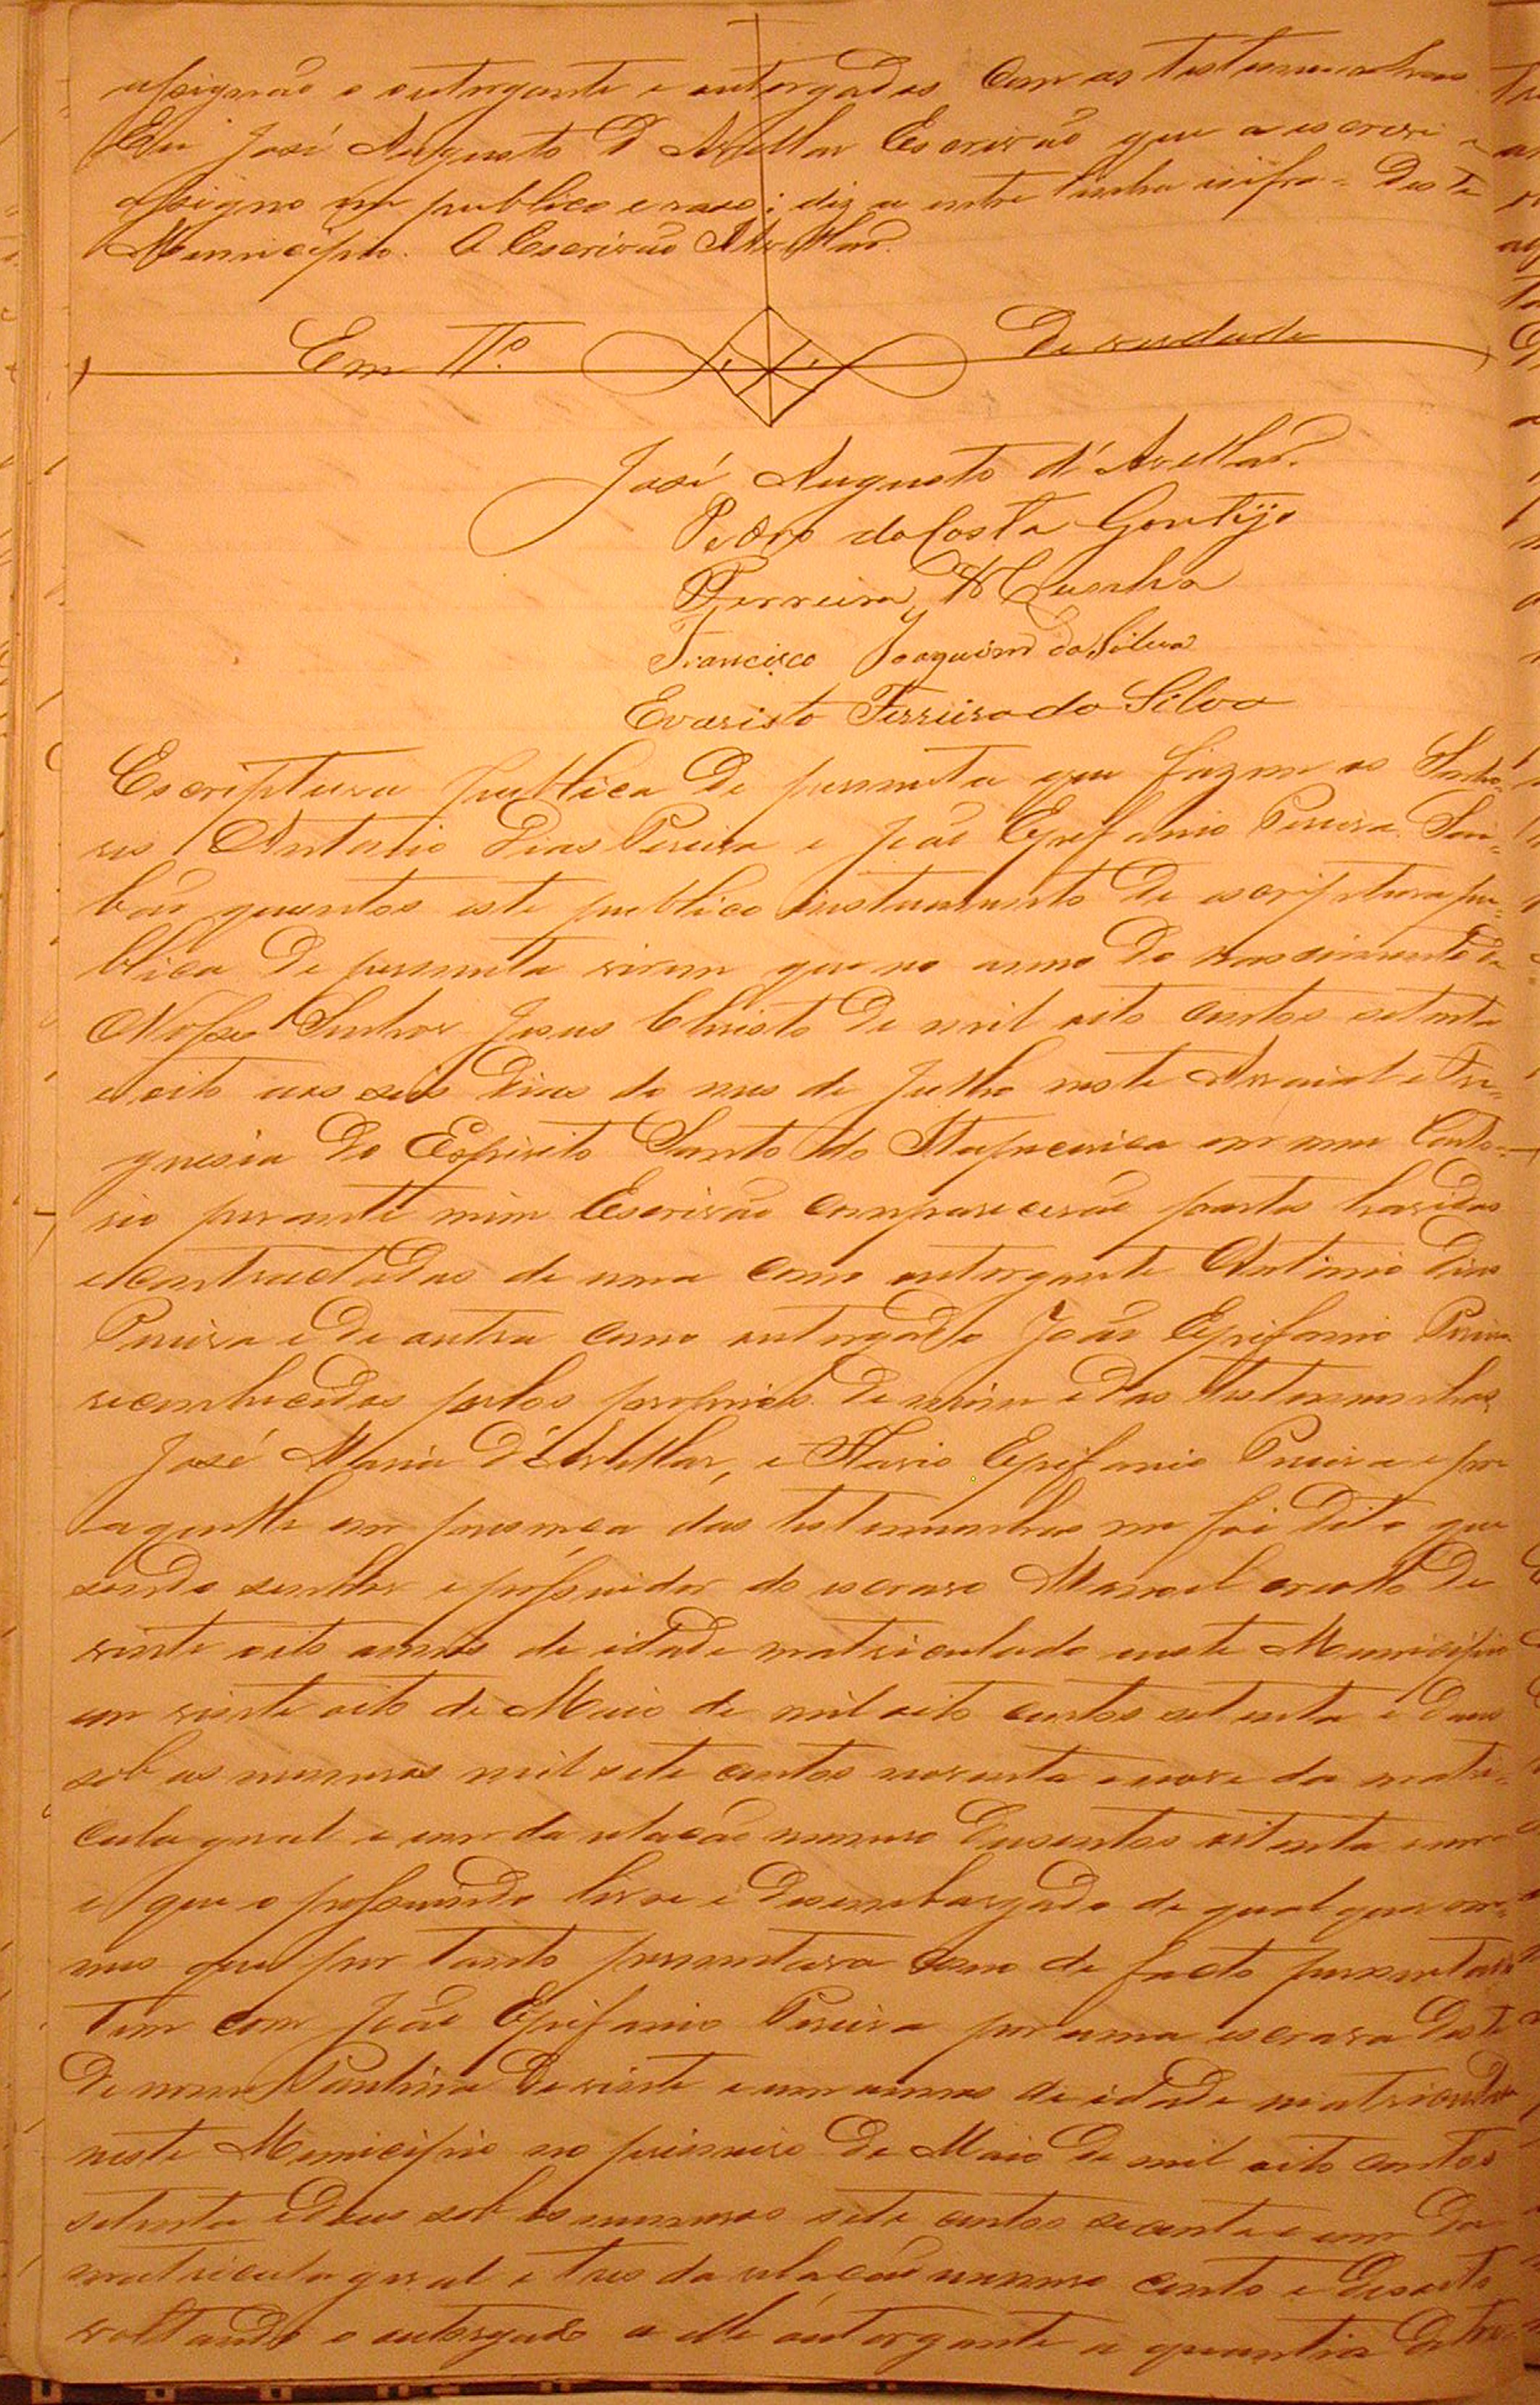 assignão o outorgante e outorgados com as testemunhas
Eu José Augusto D Avellar Escrivão que a escrevi e
assigno em publico e raso; diz a entre linha supra = deste
Municipio. O Escrivão Avellar.
Em Tº. De verdade
José Augusto d'Avellar.
Pedro da Costa Gontijo
Ferreira Cunha
Francisco Joaquim da Silva
Evaristo Ferreira da Silva
Escriptura publica de permuta que fazem os Senho-
res Antonio Dias Pereira e João Epifanio Pereira. Sai-
bão quantos este publico instrumento de escriptura pu-
blica de permuta virem que no anno do nascimento de
Nosso Senhor Jesus Christo de mil oito centos setenta
e oito aos seis dias do mes de Julho neste Arraial e Fre-
guesia do Espirito Santo do Itapecerica em meu Carto-
rio perante mim Escrivão comparecerão partes havidas
e contractadas de uma como outorgante Antonio Dias
Pereira e de outra como outorgado João Epifanio Pereira
reconhecidas pelos proprios de mim e das testemunhas
José Maria d'Avellar, e Flavio Epifanio Pereira e por
aquelle em presença das testemunhas me foi dito que
sendo senhor e possuidor do escravo Manoel crioulo de
vinte oito annos de idade matriculado neste Municipio
em vinte oito de Maio de mil oito centos setenta e dous
sob os numeros mil sete centos noventa e nove da matri-
cula geral e um da relação numero dusentos oitenta e um
e que o possuindo livre e desembargado de qual quer on-
nus que por tanto permutava como de facto permutado
tem com João Epifanio Pereira por uma escrava deste
de nome Paulina de vinte e um annos de idade matriculada
neste Municipio no primeiro de Maio de mil oito centos
setenta e dous sob os numeros sete centos secenta e um da
matricula geral e tres da relação numero cento e desoito
voltando o outorgado a elle outorgante a quantia de